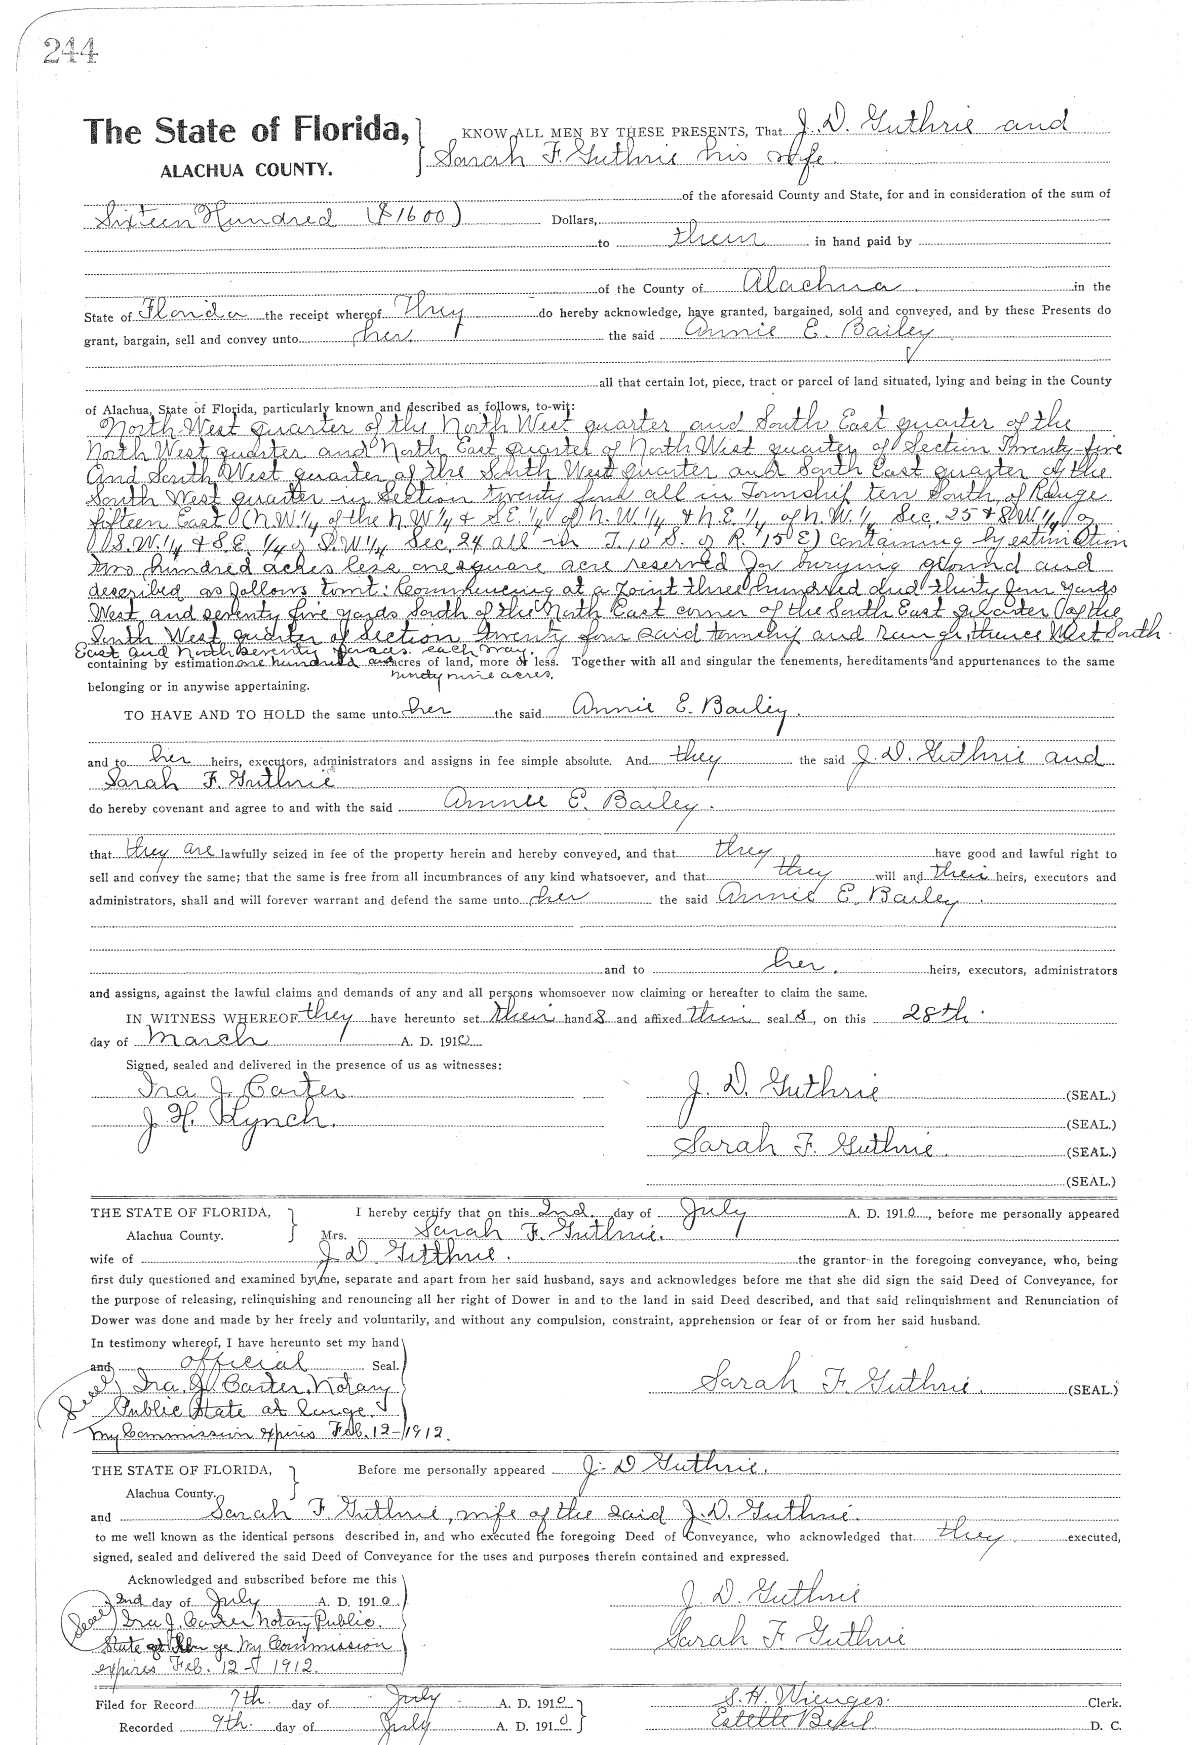 244
The State of Florida, } KNOW ALL MEN BY THESE PRESENTS, That J. D. Guthrie and
ALACHUA COUNTY. Sarah F. Guthrie his wife.
of the aforesaid County and State, for and in consideration of the sum of
Sixteen Hundred ($1600) Dollars,
to them in hand paid by
of the County of Alachua in the
State of Florida the receipt whereof they do hereby acknowledge, have granted, bargained, sold and conveyed, and by these Presents do
grant, bargain, sell and convey unto her. the said Annie E. Bailey
all that certain lot, piece, tract or parcel of land situated, lying and being in the County
of Alachua, State of Florida, particularly known and described as follows, to-wit:
North West quarter of the North West quarter and South East quarter of the
North West quarter and North East quarter of North West quarter of Section Twenty five
and South West quarter of the South West quarter and South East quarter of the
South West quarter in Section twenty four all in Township ten South, of Range
fifteen East (N.W.1/4 of the N.W.1/4 & S.E.1/4 of N.W.1/4 & N.E.1/4 of N.W.1/4 Sec. 25 & S.W.1/4 of
S.W.1/4 & S.E.1/4 of S.W.1/4 Sec. 24 all in T.10 S. of R. 15 E) containing by estimation
two hundred acres less one square acre reserved for burying ground and
described as follows towit: Commencing at a Point three hundred and thirty four yards
West and seventy five yards South of the North East corner of the South East quarter of the
South West quarter of Section twenty four said township and range, thence West South
East and North seventy yards each way.
containing by estimation one hundred and acres of land, more or less. Together with all and singular the tenements, hereditaments and appurtenances to the same
ninety nine acres.
belonging or in anywise appertaining.
TO HAVE AND TO HOLD the same unto her the said Annie E. Bailey.
and to her heirs, executors, administrators and assigns in fee simple absolute. And they the said J. D. Guthrie and
Sarah F. Guthrie
do hereby covenant and agree to and with the said Annie E. Bailey.
that they are lawfully seized in fee of the property herein and hereby conveyed, and that they have good and lawful right to
sell and convey the same; that the same is free from all incumbrances of any kind whatsoever, and that they will and their heirs, executors and
administrators, shall and will forever warrant and defend the same unto her the said Annie E. Bailey.
and to her. heirs, executors, administrators
and assigns, against the lawful claims and demands of any and all persons whomsoever now claiming or hereafter to claim the same.
IN WITNESS WHEREOF they have hereunto set their hands and affixed their seals, on this 28th.
day of March A. D. 1910
Signed, sealed and delivered in the presence of us as witnesses:
Ira J. Carter J. D. Guthrie (SEAL.)
J. H. Lynch. (SEAL.)
Sarah F. Guthrie. (SEAL.)
(SEAL.)
THE STATE OF FLORIDA, } I hereby certify that on this 2nd. day of July A. D. 1910, before me personally appeared
Alachua County. Mrs. Sarah F. Guthrie.
wife of J. D. Guthrie. the grantor in the foregoing conveyance, who, being
first duly questioned and examined by me, separate and apart from her said husband, says and acknowledges before me that she did sign the said Deed of Conveyance, for
the purpose of releasing, relinquishing and renouncing all her right of Dower in and to the land in said Deed described, and that said relinquishment and Renunciation of
Dower was done and made by her freely and voluntarily, and without any compulsion, constraint, apprehension or fear of or from her said husband.
In testimony whereof, I have hereunto set my hand
and official Seal.
(Seal) Ira. J. Carter, Notary Sarah F. Guthrie. (SEAL.)
Public State at large.
My Commission expires Feb. 12-1912.
THE STATE OF FLORIDA, } Before me personally appeared J. D Guthrie.
Alachua County.
and Sarah F. Guthrie, wife of the said J. D. Guthrie.
to me well known as the identical persons described in, and who executed the foregoing Deed of Conveyance, who acknowledged that they executed,
signed, sealed and delivered the said Deed of Conveyance for the uses and purposes therein contained and expressed.
Acknowledged and subscribed before me this
2nd day of July A. D. 1910 J. D. Guthrie
(Seal) Ira J. Carter Notary Public.
State at large My Commission Sarah F Guthrie
expires Feb. 12- 1912.
Filed for Record 7th. day of July A. D. 1910 S. H. Wienges. Clerk.
Recorded 9th. day of July A. D. 1910 Estelle D. C.